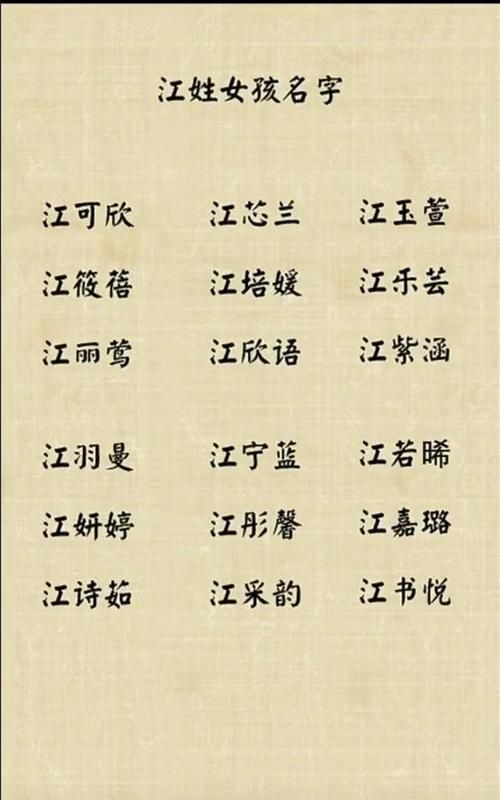 江姓女孩名字
江可欣 江芯兰 江玉萱
江筱蓓 江培媛 江乐芸
江丽莺 江欣语 江紫涵
江羽曼 江宁蓝 江若晞
江妍婷 江彤馨 江嘉璐
江诗茹 江采韵 江书悦